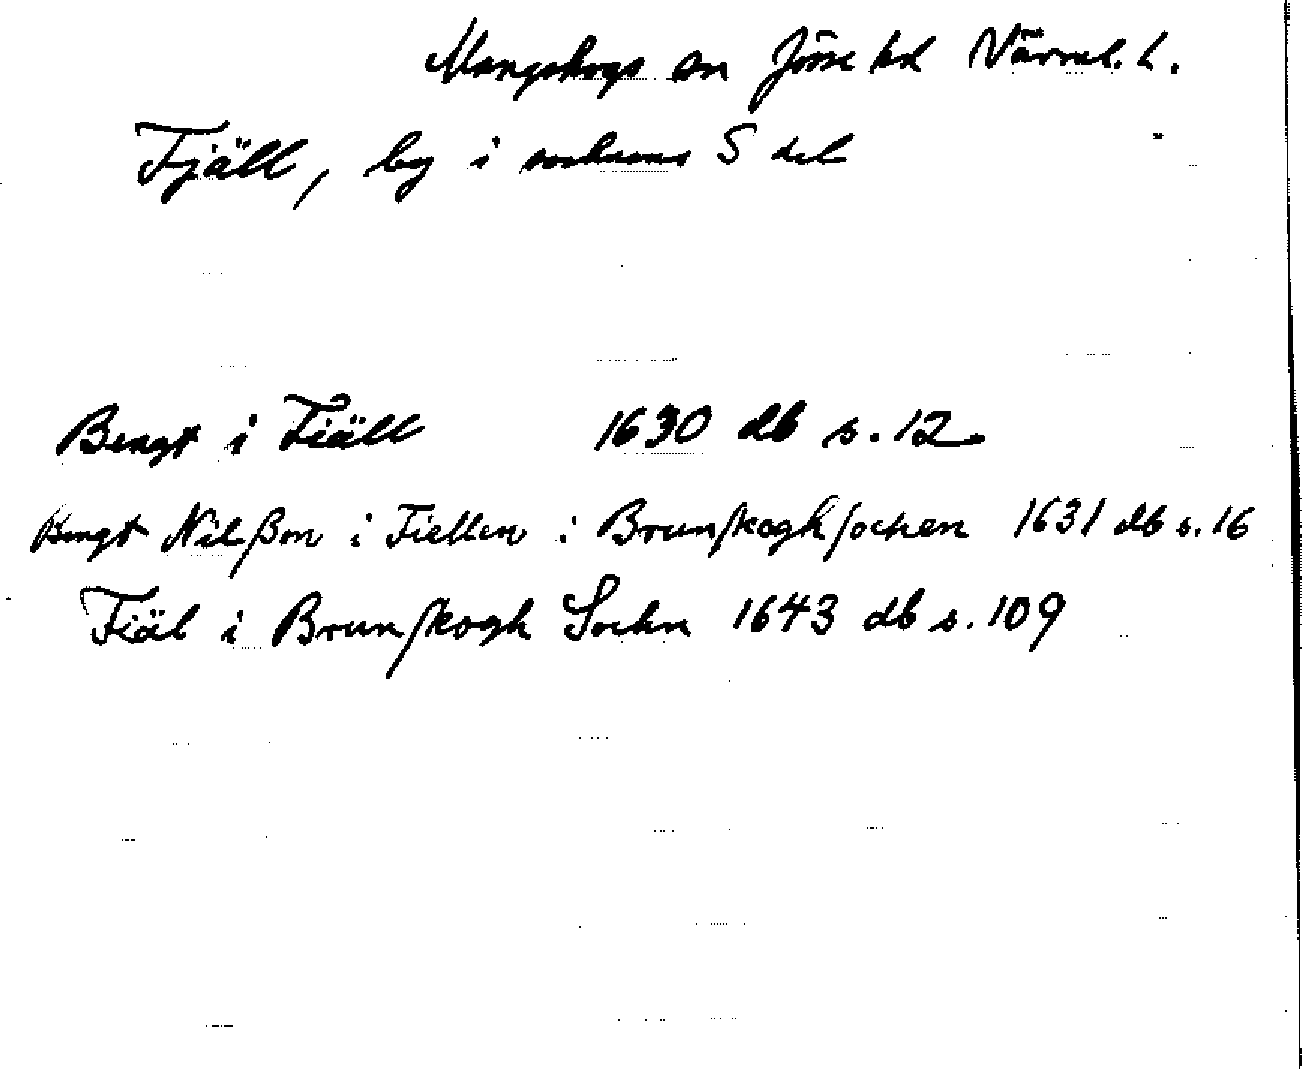 Mangskogs sn Jösse hd Värml. l.
Fjäll, by i socknens S del
Bengt i Fiäll 1630 db s. 12
Bengt Nilßon i Fiellen i Brunskogh sochen 1631 db s. 16
Fiäl i Brunskogh Sochn 1643 db s. 109